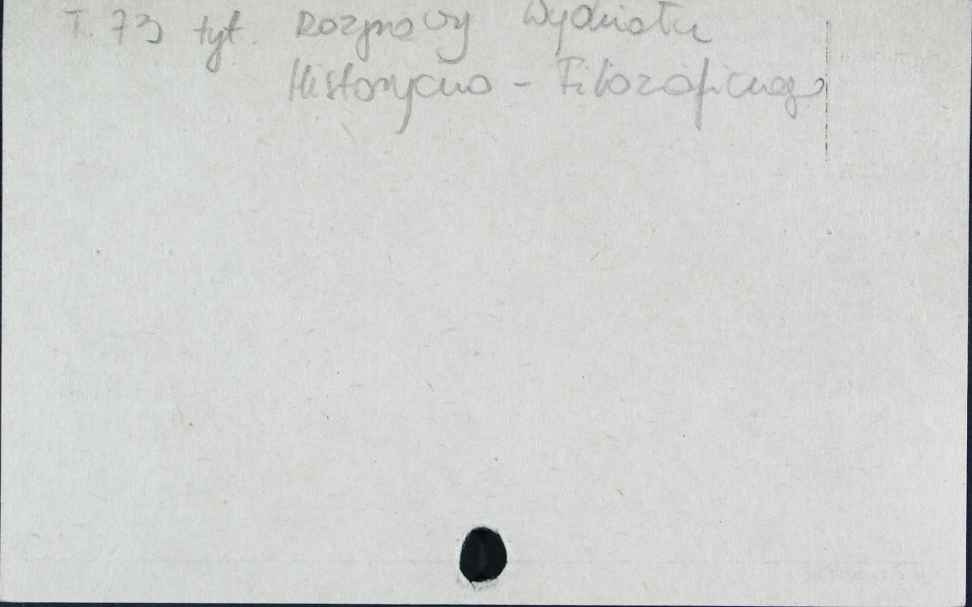 T. 73 tyt. Rozprawy Wydziału
Historyczno - Filozoficznego